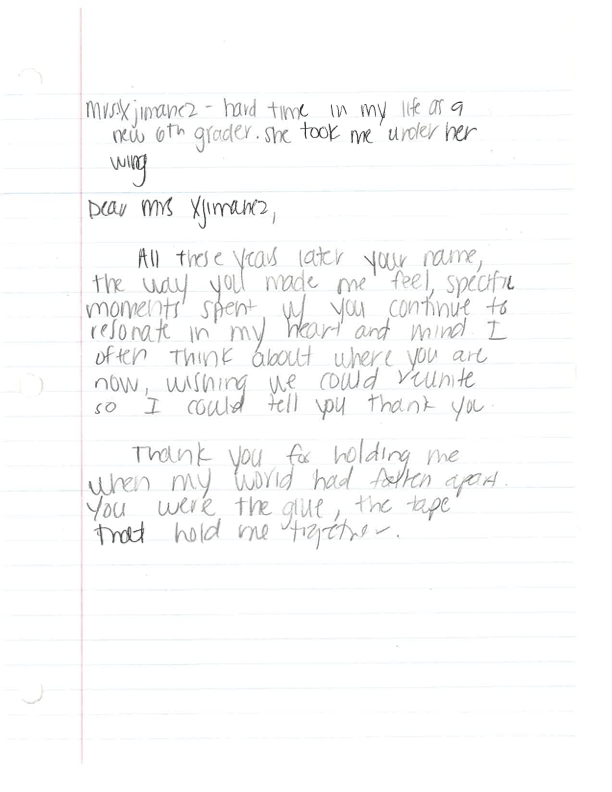 Mrs. Xjimanez - hard time in my life as a
new 6th grader. she took me under her
wing
Dear Mrs Xjimanez,
All these years later your name,
the way you made me feel, specific
moments spent w/ you continue to
resonate in my heart and mind I
often think about where you are
now, wishing we could reunite
so I could tell you thank you.
Thank you for holding me
when my world had fallen apart.
You were the glue, the tape
that hold me together.